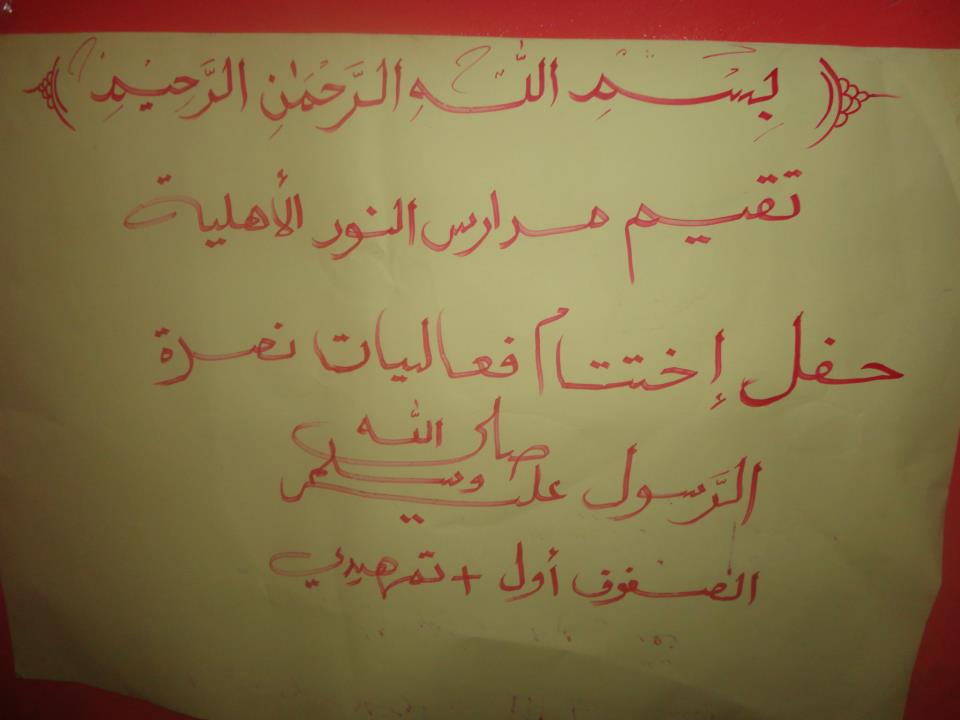 بِسْمِ اللَّهِ الرَّحْمَٰنِ الرَّحِيْمِ
تقيم مدارس النور الأهلية
حفل إختتام فعاليات نصرة
الرَّسول صلى الله عليه وسلم
الصفوف أول + تمهيدي